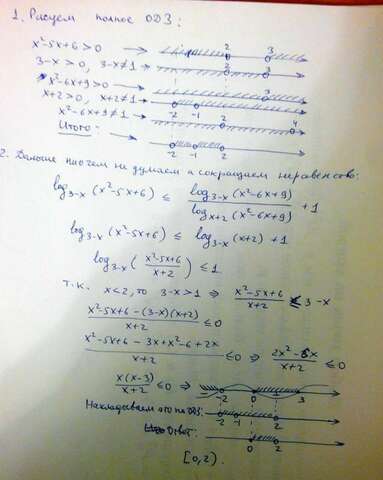 1. Рисуем полное ОДЗ:
x²-5x+6>0
3-x>0, 3-x≠1
x²-6x+9>0
x+2>0, x+2≠1
x²-6x+9≠1
Итого:
2 3
2 3
3
-2 -1
2 4
-2 -1 2
2. Дальше ни о чем не думаем и сокращаем неравенство:
log₃₋ₓ(x²-5x+6) ≤ log₃₋ₓ(x²-6x+9) / logₓ₊₂(x²-6x+9) + 1
log₃₋ₓ(x²-5x+6) ≤ log₃₋ₓ(x+2) + 1
log₃₋ₓ((x²-5x+6)/(x+2)) ≤ 1
т.к. x<2, то 3-x>1 ⇒ (x²-5x+6)/(x+2) ≤ 3-x
(x²-5x+6-(3-x)(x+2))/(x+2) ≤ 0
(x²-5x+6-3x+x²-6+2x)/(x+2) ≤ 0 ⇒ (2x²-6x)/(x+2) ≤ 0
x(x-3)/(x+2) ≤ 0 ⇒ -2 0 3
Накладываем это на ОДЗ: -2 -1 2
Ответ: 0 2
[0,2).